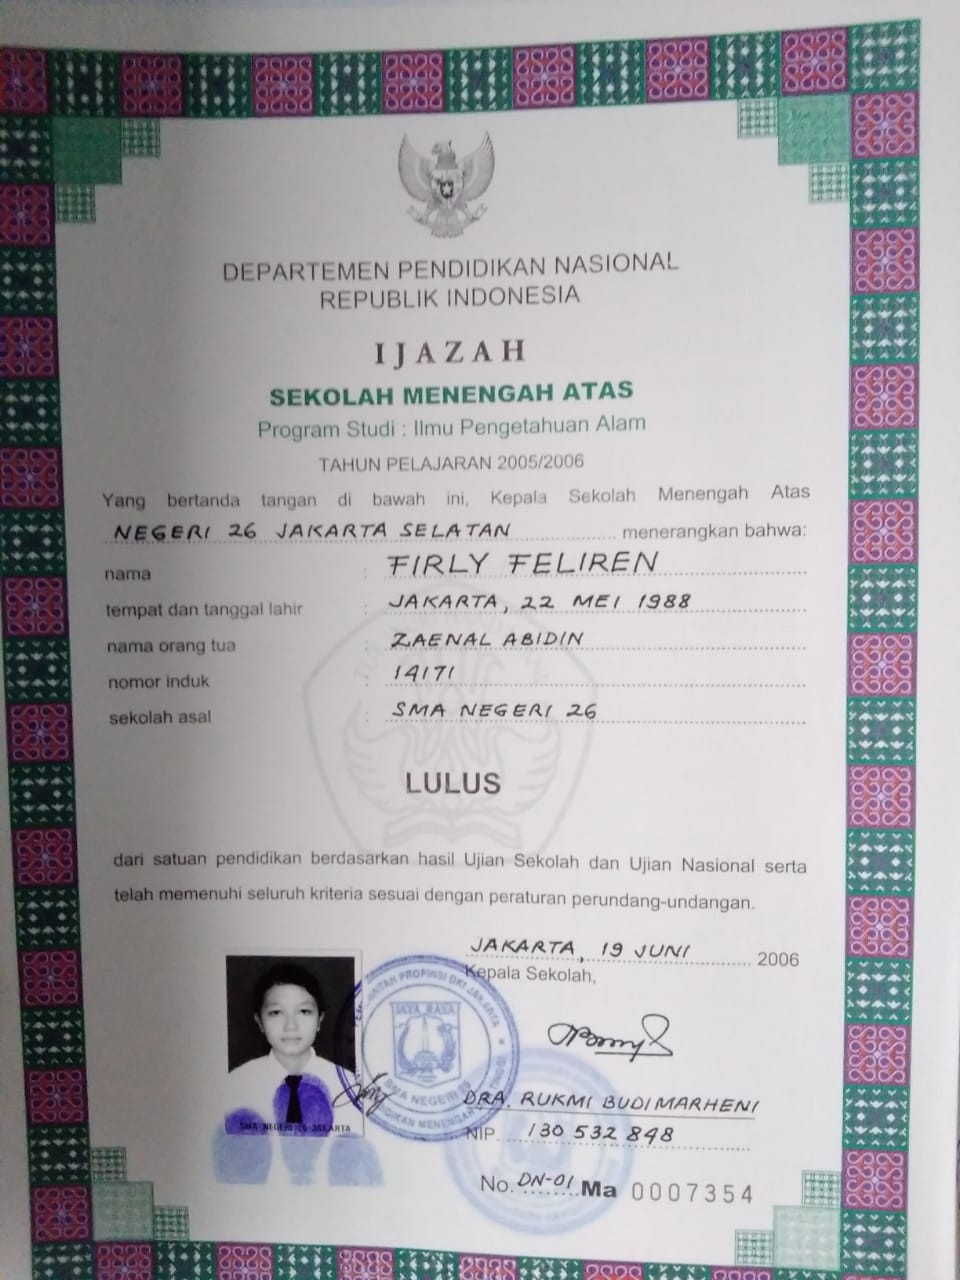 DEPARTEMEN PENDIDIKAN NASIONAL
REPUBLIK INDONESIA
IJAZAH
SEKOLAH MENENGAH ATAS
Program Studi : Ilmu Pengetahuan Alam
TAHUN PELAJARAN 2005/2006
Yang bertanda tangan di bawah ini, Kepala Sekolah Menengah Atas
NEGERI 26 JAKARTA SELATAN menerangkan bahwa:
nama : FIRLY FELIREN
tempat dan tanggal lahir : JAKARTA, 22 MEI 1988
nama orang tua : ZAENAL ABIDIN
nomor induk : 14171
sekolah asal : SMA NEGERI 26
LULUS
dari satuan pendidikan berdasarkan hasil Ujian Sekolah dan Ujian Nasional serta
telah memenuhi seluruh kriteria sesuai dengan peraturan perundang-undangan.
JAKARTA, 19 JUNI 2006
Kepala Sekolah,
PROPINSI DKI JAKARTA
JAYA RAYA
SMA NEGERI 26
DRA. RUKMI BUDIMARHENI
SMA NEGERI 26 JAKARTA
NIP. 130 532 848
No. DN-01 Ma 0007354